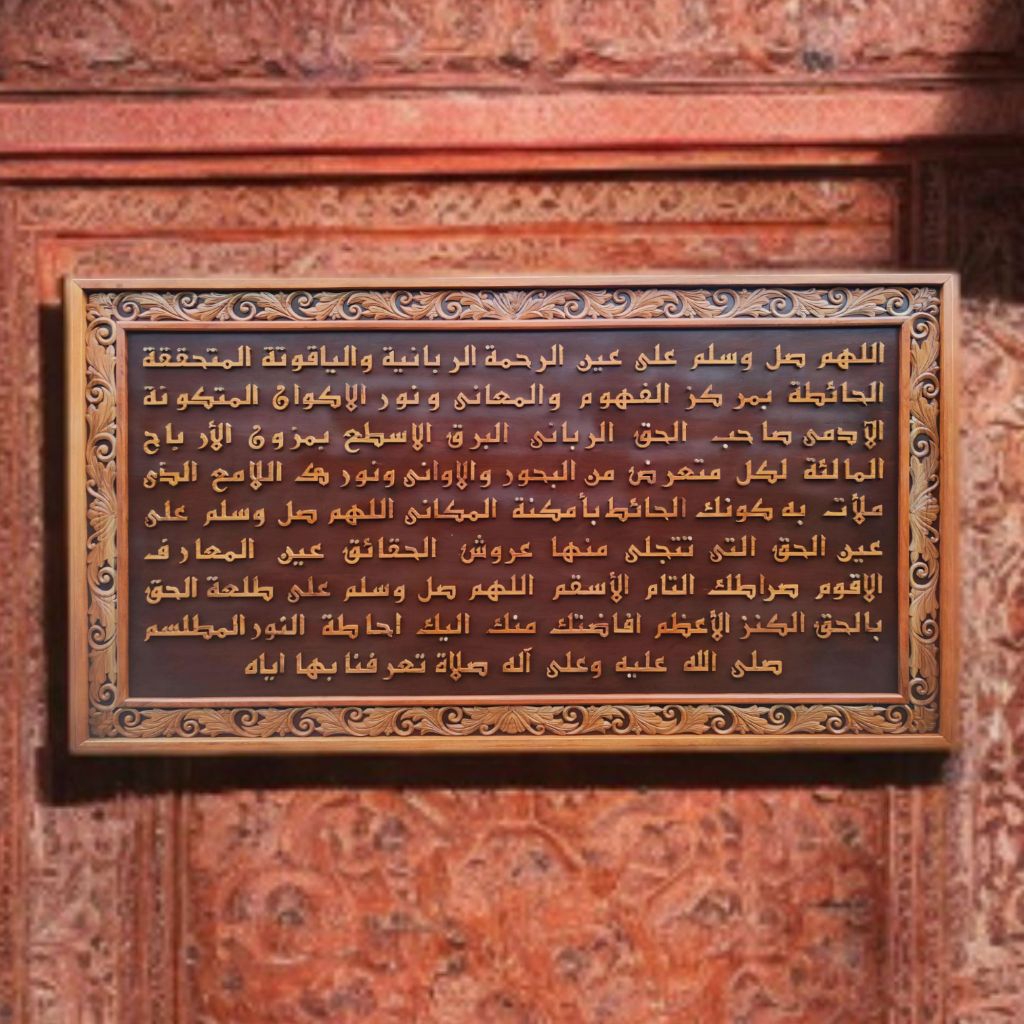 اللهم صل وسلم على عين الرحمة الربانية والياقوتة المتحققة
الحائطة بمركز الفهوم والمعانى ونور الاكوان المتكونة
الآدمى صاحب الحق الربانى البرق الاسطع بمزون الأرباح
المالئة لكل متعرض من البحور والاوانى ونورك اللامع الذى
ملأت به كونك الحائط بأمكنة المكانى اللهم صل وسلم على
عين الحق التى تتجلى منها عروش الحقائق عين المعارف
الاقوم صراطك التام الأسقم اللهم صل وسلم على طلعة الحق
بالحق الكنز الأعظم افاضتك منك اليك احاطة النور المطلسم
صلى الله عليه وعلى آله صلاة تعرفنا بها اياه